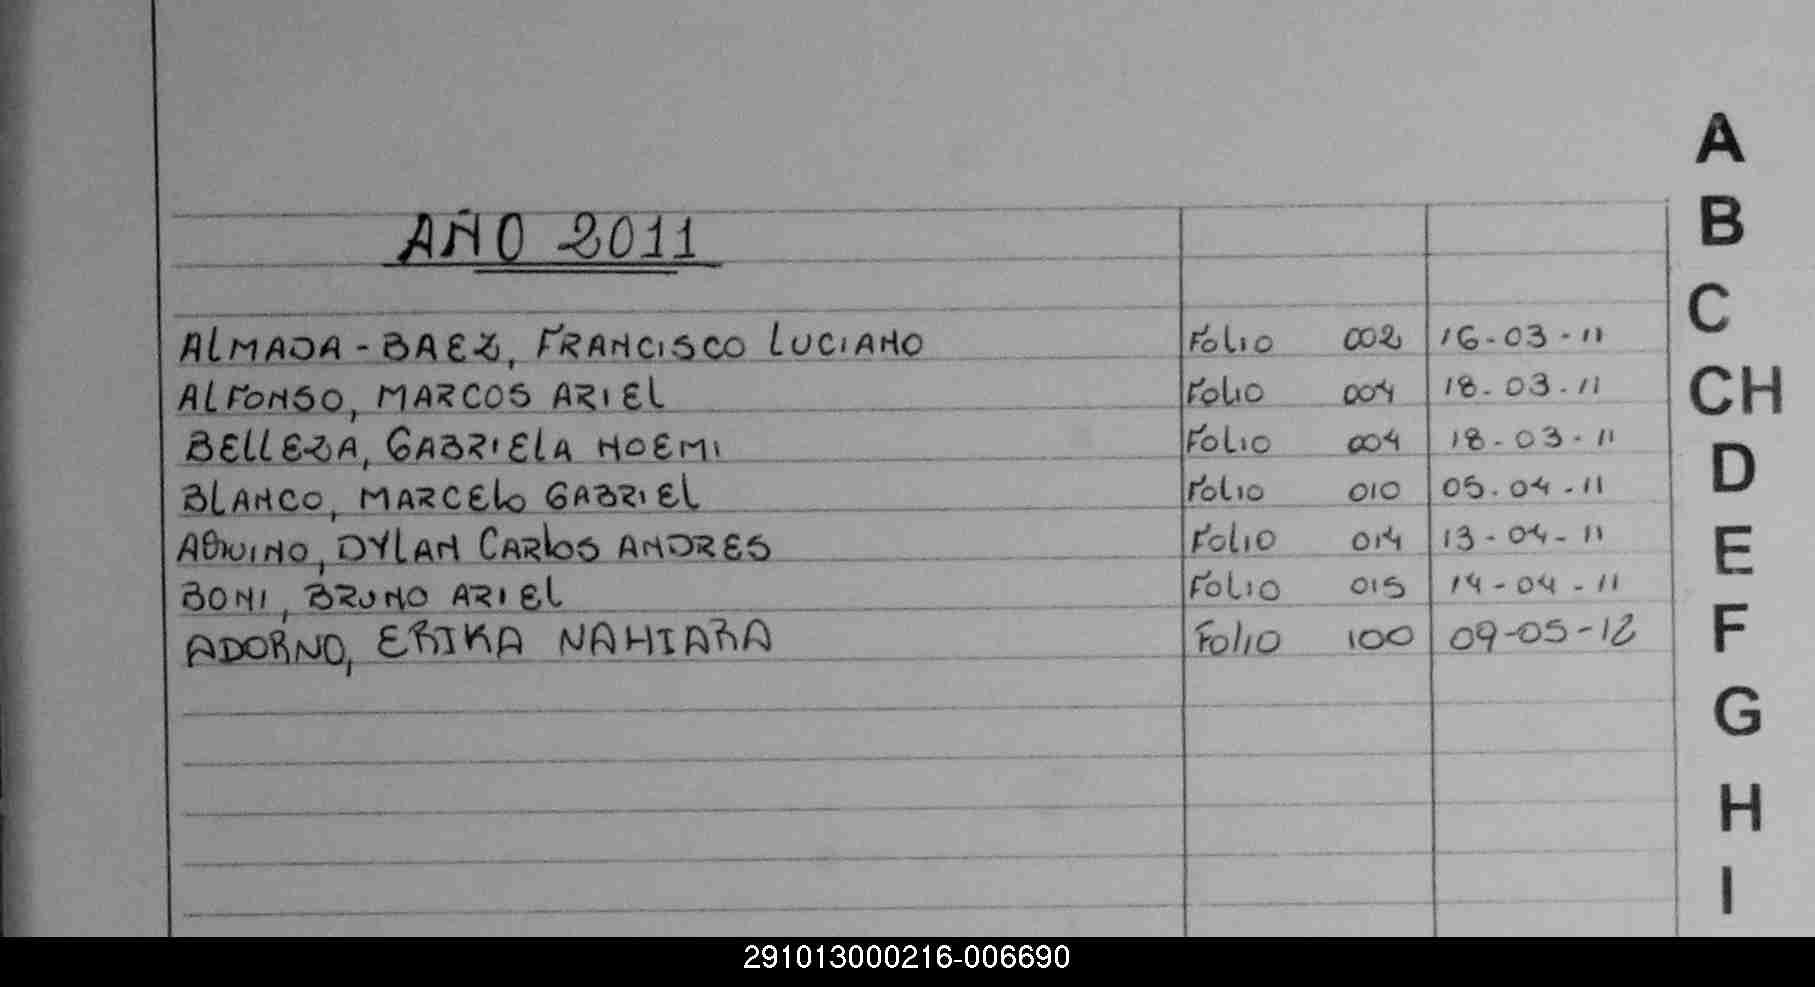 AÑO 2011
ALMADA-BAEZ, FRANCISCO LUCIANO Folio 002 16-03-11
ALFONSO, MARCOS ARIEL Folio 004 18-03-11
BELLEZA, GABRIELA NOEMI Folio 004 18-03-11
BLANCO, MARCELO GABRIEL Folio 010 05-04-11
AQUINO, DYLAN CARLOS ANDRES Folio 014 13-04-11
BONI, BRUNO ARIEL Folio 015 14-04-11
ADORNO, ERIKA NAHIARA Folio 100 09-05-12
A
B
C
CH
D
E
F
G
H
I
291013000216-006690